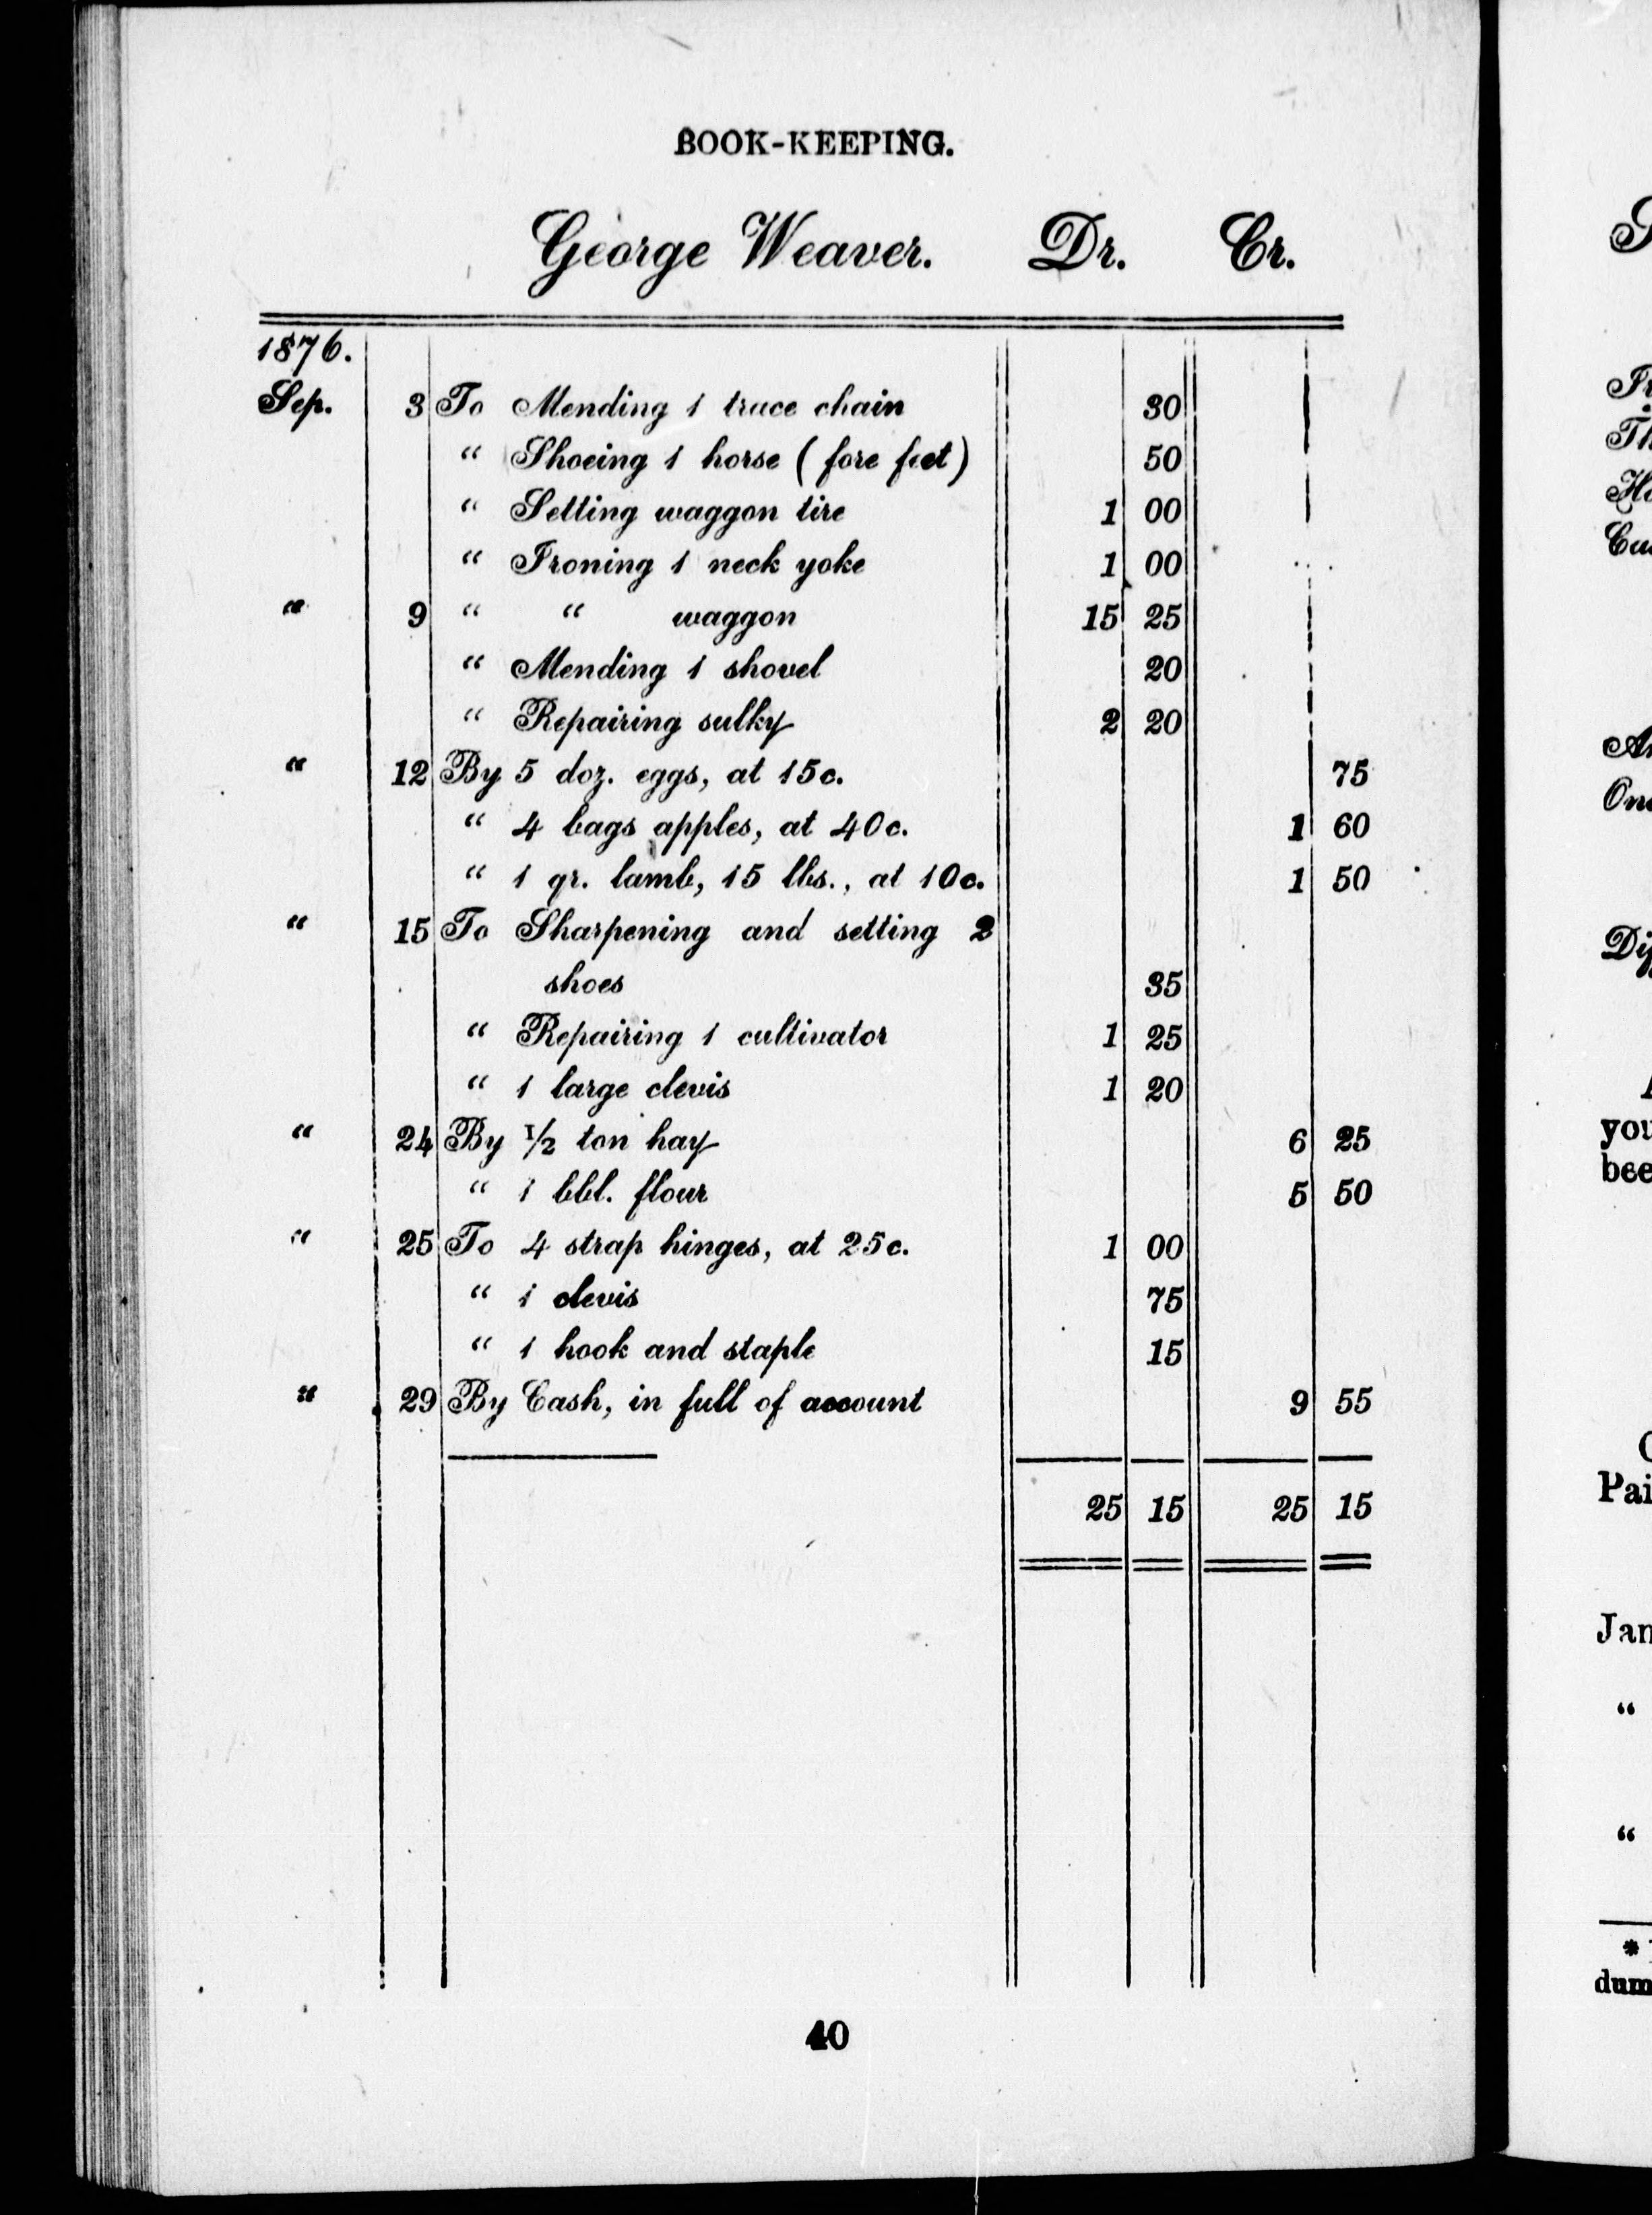 BOOK-KEEPING.
George Weaver. Dr. Cr.
1876.
Sep. 3 To Mending 1 trace chain 30
“ Shoeing 1 horse ( fore feet ) 50
“ Setting waggon tire 1 00
“ Ironing 1 neck yoke 1 00
“ 9 “ “ waggon 15 25
“ Mending 1 shovel 20
“ Repairing sulky 2 20
“ 12 By 5 doz. eggs, at 15c. 75
“ 4 bags apples, at 40c. 1 60
“ 1 qr. lamb, 15 lbs., at 10c. 1 50
“ 15 To Sharpening and setting 2
shoes 35
“ Repairing 1 cultivator 1 25
“ 1 large clevis 1 20
“ 24 By 1/2 ton hay 6 25
“ 1 bbl. flour 5 50
“ 25 To 4 strap hinges, at 25c. 1 00
“ 1 clevis 75
“ 1 hook and staple 15
“ 29 By Cash, in full of account 9 55
25 15 25 15
40
you
bee
Pai
Jan
“
“
*
dum